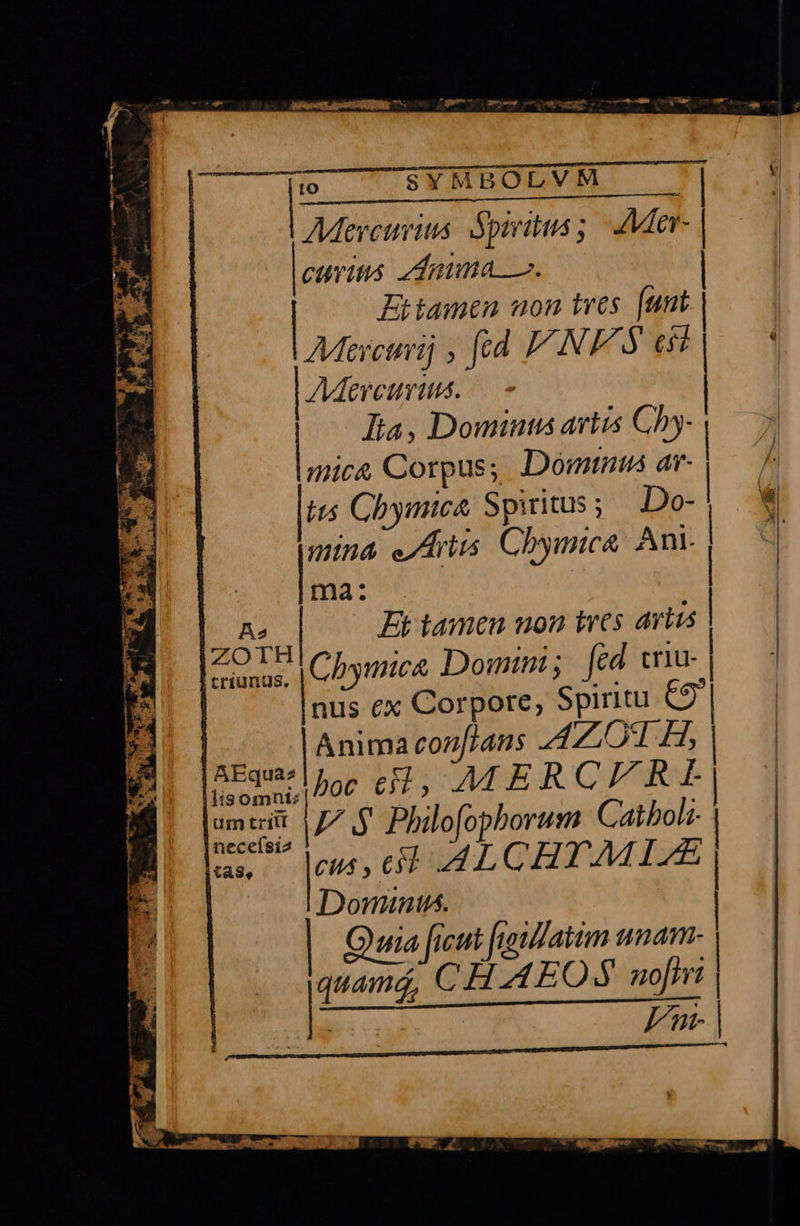 10 SYMBOLVM
Mercurius Spiritus; Mer-
curius Anima.
Et tamen non tres ſunt
Mercurij, ſed VNVS eſt
Mercurius.
Ita, Dominus artis Chy-
micæ Corpus; Dominus ar-
tis Chymicæ Spiritus; Do-
mina Artis Chymicæ Ani-
ma:
Et tamen non tres artis
Chymicæ Domini; ſed triu-
nus ex Corpore, Spiritu &
Anima conſtans AZOTH,
hoc eſt, MERCVRI-
VS Philoſophorum Catholi-
cus, eſt ALCHYMIÆ
Dominus.
Quia ſicut ſigillatim unam-
quamq́, CHAEOS noſtri
Vni-
Az
ZOTH
triunus.
AEquaz
lis omniz
um triū
neceſsiz
tas,